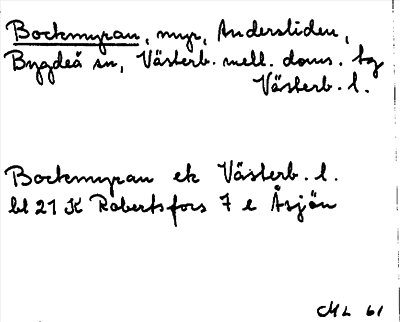 Bockmyran, myr, Andersliden,
Bygdeå sn, Västerb. mell. doms. tg
Västerb. l.
Bockmyran ek Västerb. l.
bl 21 K Robertsfors 7 e Åsjön
ML 61